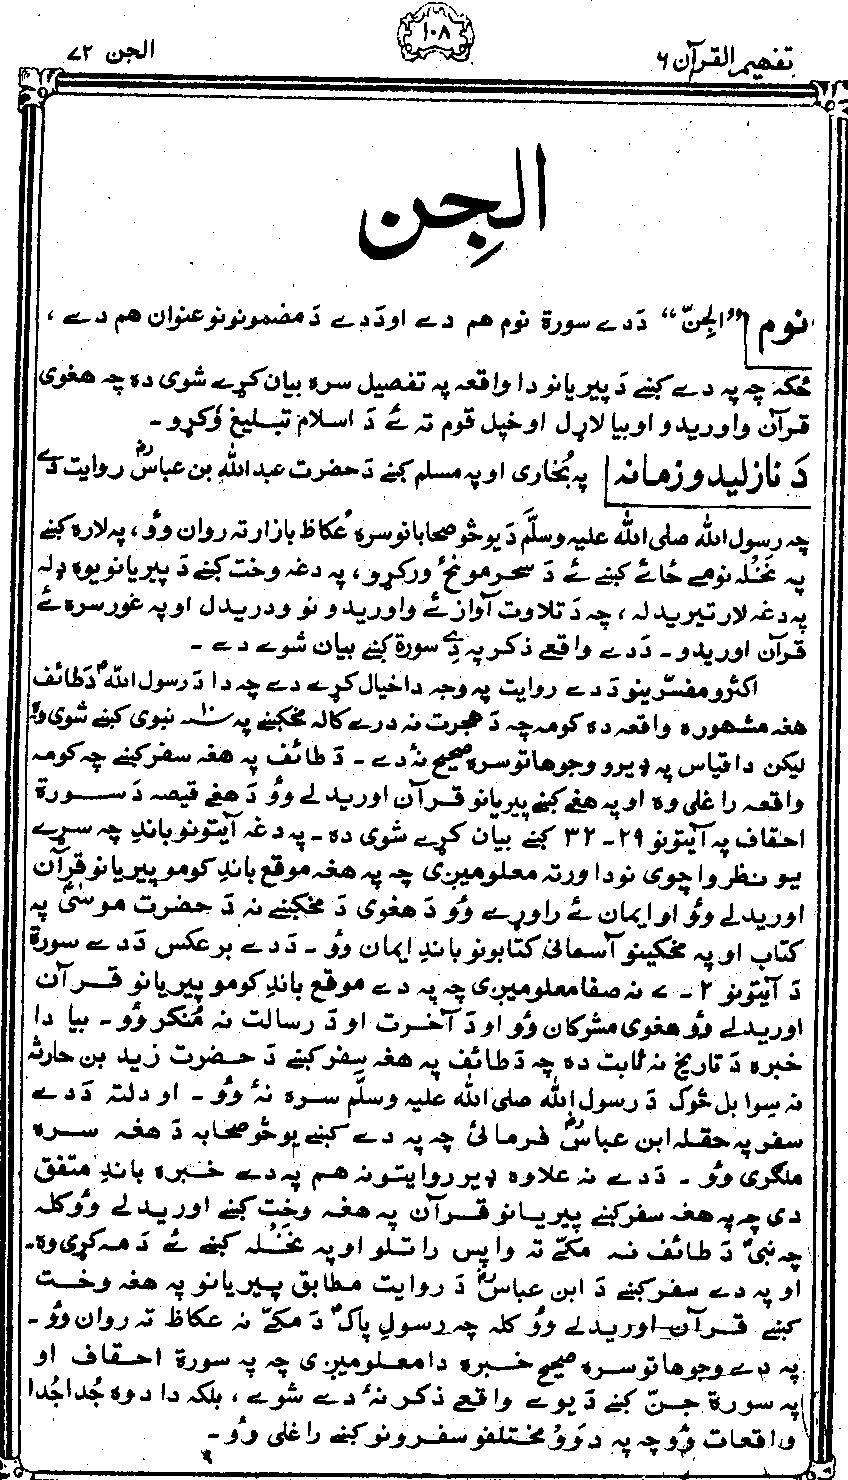 تفهيم القرآن ۶
۱۰۸
الجن ۷۲
الجِن
نوم "الجِنّ" دَدے سورة نوم هم دے اودَدے دَ مضمونونو عنوان هم دے ،
ځکه چه په دے کښے دَ پيريانو دا واقعه په تفصيل سره بيان کړے شوى ده چه هغوى
قرآن واوريدو اوبيا لاړل اوخپل قوم ته ئے دَ اسلام تبليغ وَکړو -
دَ نازليدو زمانه په بُخارى اوپه مسلم کښے دَحضرت عبدالله بن عباسؓ روايت دے
چه رسول الله صلى الله عليه وسلّم دَ يوڅو صحابانو سره عُکاظ بازار ته روان وؤ، په لاره کښے
په نَخْله نومے ځائے کښے ئے دَ سحر مونځ ورکړو، په دغه وخت کښے دَ پيريانو يوه ډله
په دغه لار تيريدله ، چه دَ تلاوت آواز ئے واوريدو نو ودريدل اوپه غور سره ئے
قرآن اوريدو - دَدے واقعے ذکر په دِے سورة کښے بيان شوے دے -
اکثرو مفسّرينو دَدے روايت په وجه داخيال کړے دے چه دا دَ رسول اللهؐ دَ طائف
هغه مشهوره واقعه ده کومه چه دَ هجرت نه درے کاله مخکښے په ۱۰ سنه نبوى کښے شوى وه
ليکن دا قياس په ډيرو وجوهاتو سره صحيح نهٔ دے - دَ طائف په هغه سفر کښے چه کومه
واقعه راغلى وه اوپه هغے کښے پيريانو قرآن اوريدلے وؤ دَ هغے قيصه دَ سورة
احقاف په آيتونو ۲۹- ۳۲ کښے بيان کړے شوى ده - په دغه آيتونو باندِ چه سړے
يو نظر واچوى نو دا ورته معلوميږى چه په هغه موقع باندِ کومو پيريانو قرآن
اوريدلے وؤ او ايمان ئے راوړے وؤ دَ هغوى دَ مخکښے نه دَ حضرت موسىٰؑ په
کتاب اوپه مخکينو آسمانى کتابونو باندِ ايمان وؤ - دَدے برعکس دَدے سورة
دَ آيتونو ۲ - ۷ نه صفا معلوميږى چه په دے موقع باندِ کومو پيريانو قرآن
اوريدلے وؤ هغوى مشرکان وؤ او دَ آخرت او دَ رسالت نه مُنکر وؤ - بيا دا
خبره دَ تاريخ نه ثابت ده چه دَ طائف په هغه سفر کښے دَ حضرت زيد بن حارثه
نه سِوا بل څوک دَ رسول الله صلى الله عليه وسلّم سره نهٔ وؤ - او دلته دَدے
سفر په حقله ابن عباسؓ فرمائى چه په دے کښے يو څو صحابه دَ هغه سره
ملګرى وؤ - دَدے نه علاوه ډير روايتونه هم په دے خبره باندِ متفق
دى چه په هغه سفر کښے پيريانو قرآن په هغه وخت کښے اوريدلے وؤ کله
چه نبىؐ دَ طائف نه مکّے ته واپس راتلو اوپه نَخْله کښے ئے دَمه کړى وه -
اوپه دے سفر کښے دَ ابن عباسؓ دَ روايت مطابق پيريانو په هغه وخت
کښے قرآن اوريدلے وؤ کله چه رسولِ پاکؐ دَ مکّے نه عکاظ ته روان وؤ -
په دے وجوهاتو سره صحيح خبره دا معلوميږى چه په سورة احقاف او
په سورة جنّ کښے دَ يوے واقعے ذکر نهٔ دے شوے ، بلکه دا دوه جُدا جُدا
واقعات وؤ چه په دوَو مختلفو سفرونو کښے راغلى وؤ -